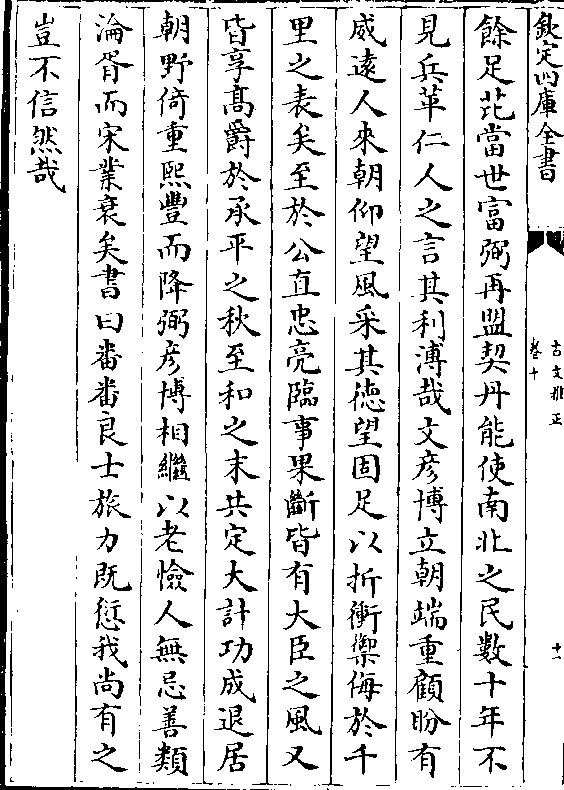 欽定四庫全書
古文雅正
卷十
十一
餘足芘當世富弼再盟契丹能使南北之民數十年不
見兵革仁人之言其利溥哉文彦博立朝端重顧盼有
威逺人來朝仰望風采其徳望固足以折衝禦侮於千
里之表矣至於公直忠亮臨事果斷皆有大臣之風又
皆享髙爵於承平之秋至和之末共定大計功成退居
朝野倚重熙豐而降弼彦博相繼以老憸人無忌善類
淪胥而宋業衰矣書曰番番良士旅力既愆我尚有之
豈不信然哉